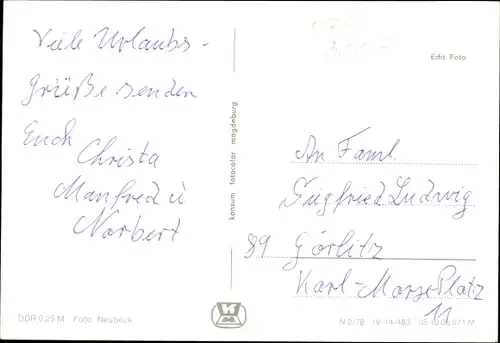 Viele Urlaubs-
grüße senden
Euch
Christa
Manfred u
Norbert
DDR 0,25 M Foto Neubeck
konsum fotocolor magdeburg
Echt Foto
An Faml.
Siegfried Ludwig
89 Görlitz
Karl-Marx Platz
11
N 2/78 IV-14-483